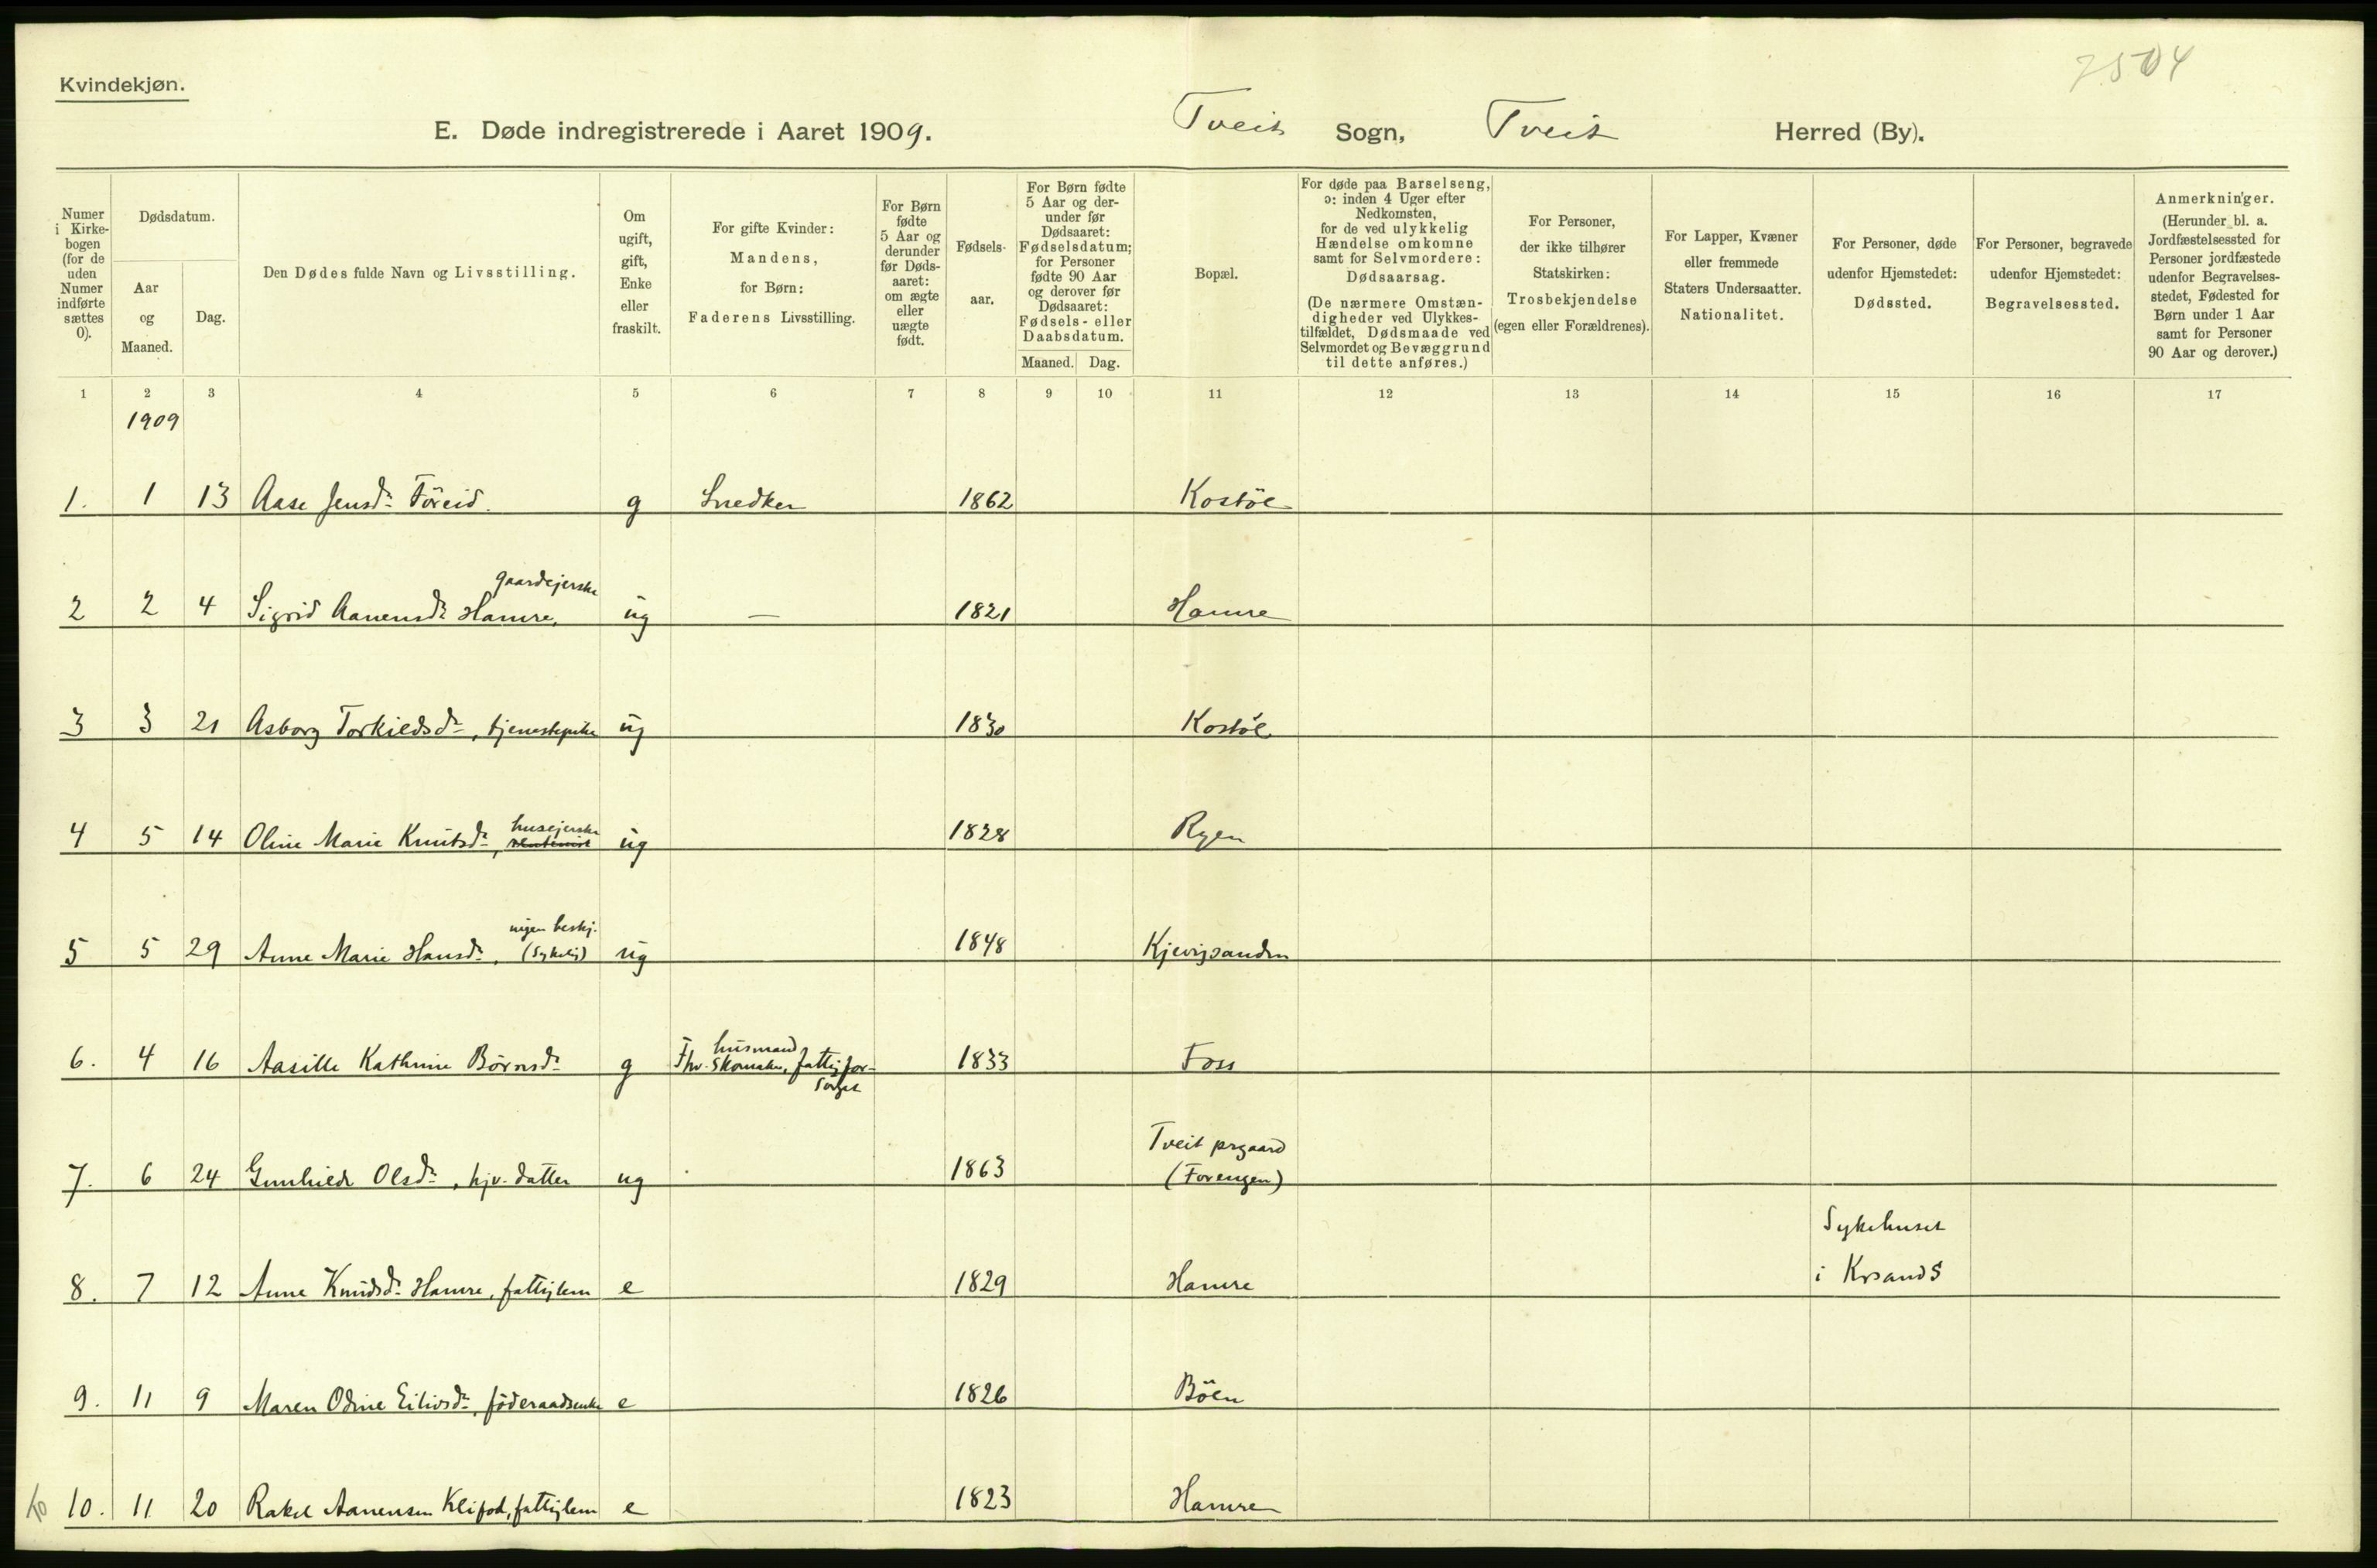 7504
Kvindekjøn.
E. Døde indregistrerede i Aaret 1909. Tveit Sogn, Tveit Herred (By).
Numer i Kirkebogen (for de uden Numer indførte sættes 0).
Dødsdatum.
Aar og Maaned.
Dag.
Den Dødes fulde Navn og Livsstilling.
Om ugift, gift, Enke eller fraskilt.
For gifte Kvinder: Mandens, for Børn: Faderens Livsstilling.
For Børn fødte 5 Aar og derunder før Dødsaaret: om ægte eller uægte født.
Fødselsaar.
For Børn fødte 5 Aar og derunder før Dødsaaret: Fødselsdatum; for Personer fødte 90 Aar og derover før Dødsaaret: Fødsels- eller Daabsdatum.
Maaned. Dag.
Bopæl.
For døde paa Barselseng, ɔ: inden 4 Uger efter Nedkomsten, for de ved ulykkelig Hændelse omkomne samt for Selvmordere: Dødsaarsag.
(De nærmere Omstændigheder ved Ulykkestilfældet, Dødsmaade ved Selvmordet og Bevæggrund til dette anføres.)
For Personer, der ikke tilhører Statskirken: Trosbekjendelse (egen eller Forældrenes).
For Lapper, Kvæner eller fremmede Staters Undersaatter. Nationalitet.
For Personer, døde udenfor Hjemstedet: Dødssted.
For Personer, begravede udenfor Hjemstedet: Begravelsessted.
Anmerkninger.
(Herunder bl. a. Jordfæstelsessted for Personer jordfæstede udenfor Begravelsesstedet, Fødested for Børn under 1 Aar samt for Personer 90 Aar og derover.)
1 2 3 4 5 6 7 8 9 10 11 12 13 14 15 16 17
1909
1. 1 13 Aase Jensdr Föreid. g Snedker 1862 Kostöl
gaardejerske
2 2 4 Sigrid Aanensdr Hamre, ug — 1821 Hamre
3 3 21 Asborg Torkildsdr, tjenestepike ug 1830 Kostöl
husejerske
4 5 14 Oline Marie Knutsdr, ug 1828 Ryen
ingen beskj.
5 5 29 Anne Marie Hansdr, (sykelig) ug 1848 Kjevigsanden
husmand
6. 4 16 Aasille Kathrine Börnsdr g Fhv. Skomaker, fattigfor- 1833 Foss
sörget
Tveit prgaard
7. 6 24 Gunhilde Olsdr, hjv. datter ug 1863 (Forengen)
Sykehuset
8. 7 12 Anne Knudsdr Hamre, fattiglem e 1829 Hamre i KrsandS
9. 11 9 Maren Odine Eilivsdr, föderaadsenke e 1826 Böen
10. 11 20 Rakel Aanensen Klepod, fattiglem e 1823 Hamre